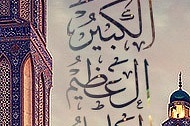 الْكَبِيرُ
الْعَظِيمُ